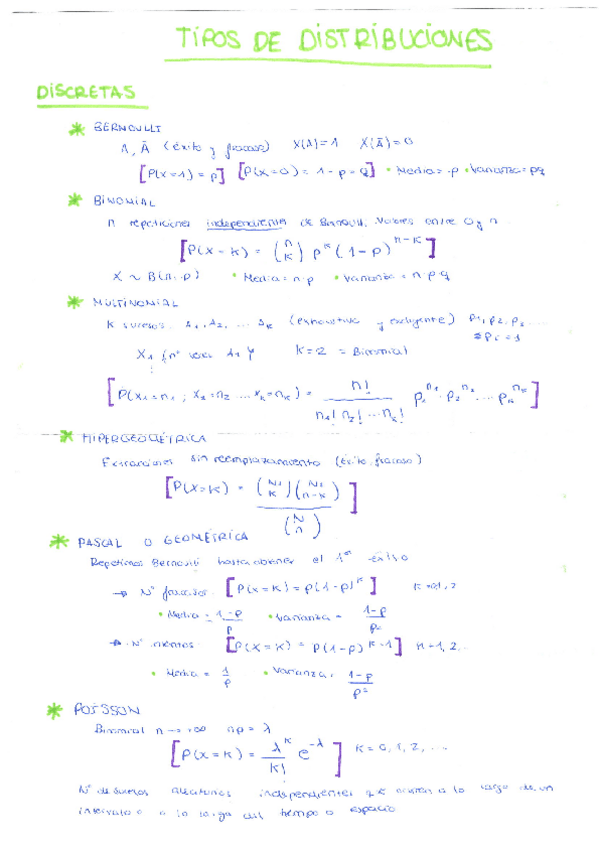 TIPOS DE DISTRIBUCIONES
DISCRETAS
* BERNOULLI
A, Ā (éxito y fracaso) X(A)=1 X(Ā)=0
[P(X=1)=p] [P(X=0)=1-p=q] • Media=p • Varianza=pq
* BINOMIAL
n repeticiones independientes de Bernoulli. Valores entre 0 y n
[P(X=K) = (n K) p^K (1-p)^n-K]
X ~ B(n,p) • Media=n·p • Varianza=n·p·q
* MULTINOMIAL
K sucesos A1, A2, ... AK (exhaustivo y excluyente) p1, p2, p3 ...
X1 {nº veces A1} K=2 = Binomial
[P(X1=n1 ; X2=n2 ... XK=nK) = n! / n1! n2! ... nK! p1^n1 · p2^n2 ... pK^nK]
* HIPERGEOMÉTRICA
Extracciones sin reemplazamiento (éxito, fracaso)
[P(X=K) = (N1 K)(N2 n-K) / (N n)]
* PASCAL O GEOMÉTRICA
Repetimos Bernoulli hasta obtener el 1er éxito
→ Nº fracasos [P(X=K)=p(1-p)^K] K=0,1,2
• Media = 1-p / p • Varianza = 1-p / p²
→ Nº intentos [P(X=K)=p(1-p)^K-1] K=1,2..
• Media = 1/p • Varianza = 1-p / p²
* POISSON
Binomial n → +∞ np=λ
[P(X=K) = λ^K / K! e^-λ] K=0,1,2,...
Nº de sucesos aleatorios independientes que ocurren a lo largo de un
intervalo o a lo largo del tiempo o espacio